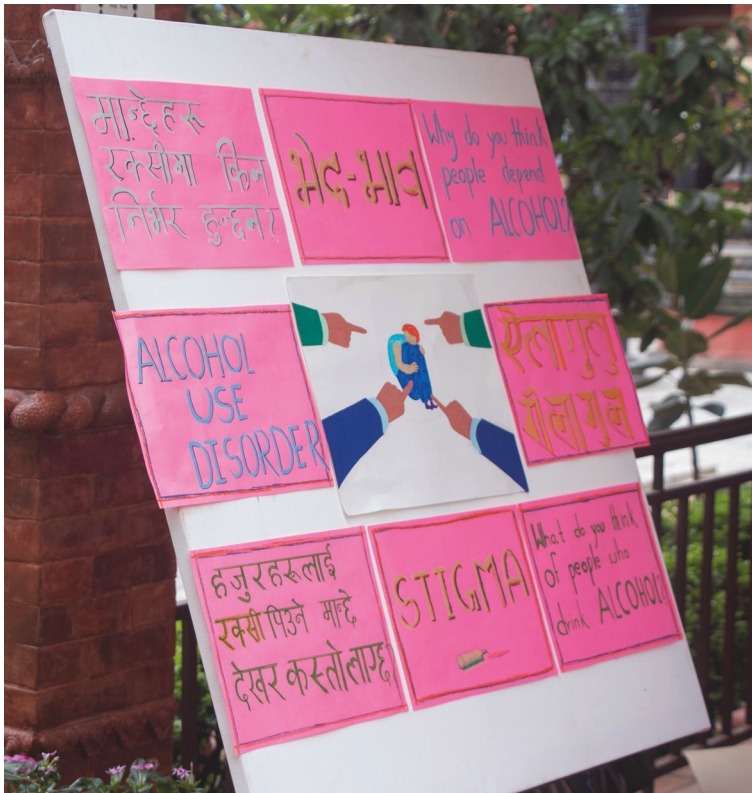 मान्छेहरू
रक्सीमा किन
निर्भर हुन्छन?
भेद-भाव
Why do you think
people depend
on ALCOHOL?
ALCOHOL
USE
DISORDER
ऐलागुलु
गैलागुन
हजुरहरूलाई
रक्सी पिउने मान्छे
देखर कस्तो लाग्छ
STIGMA
What do you think
of people who
drink ALCOHOL?